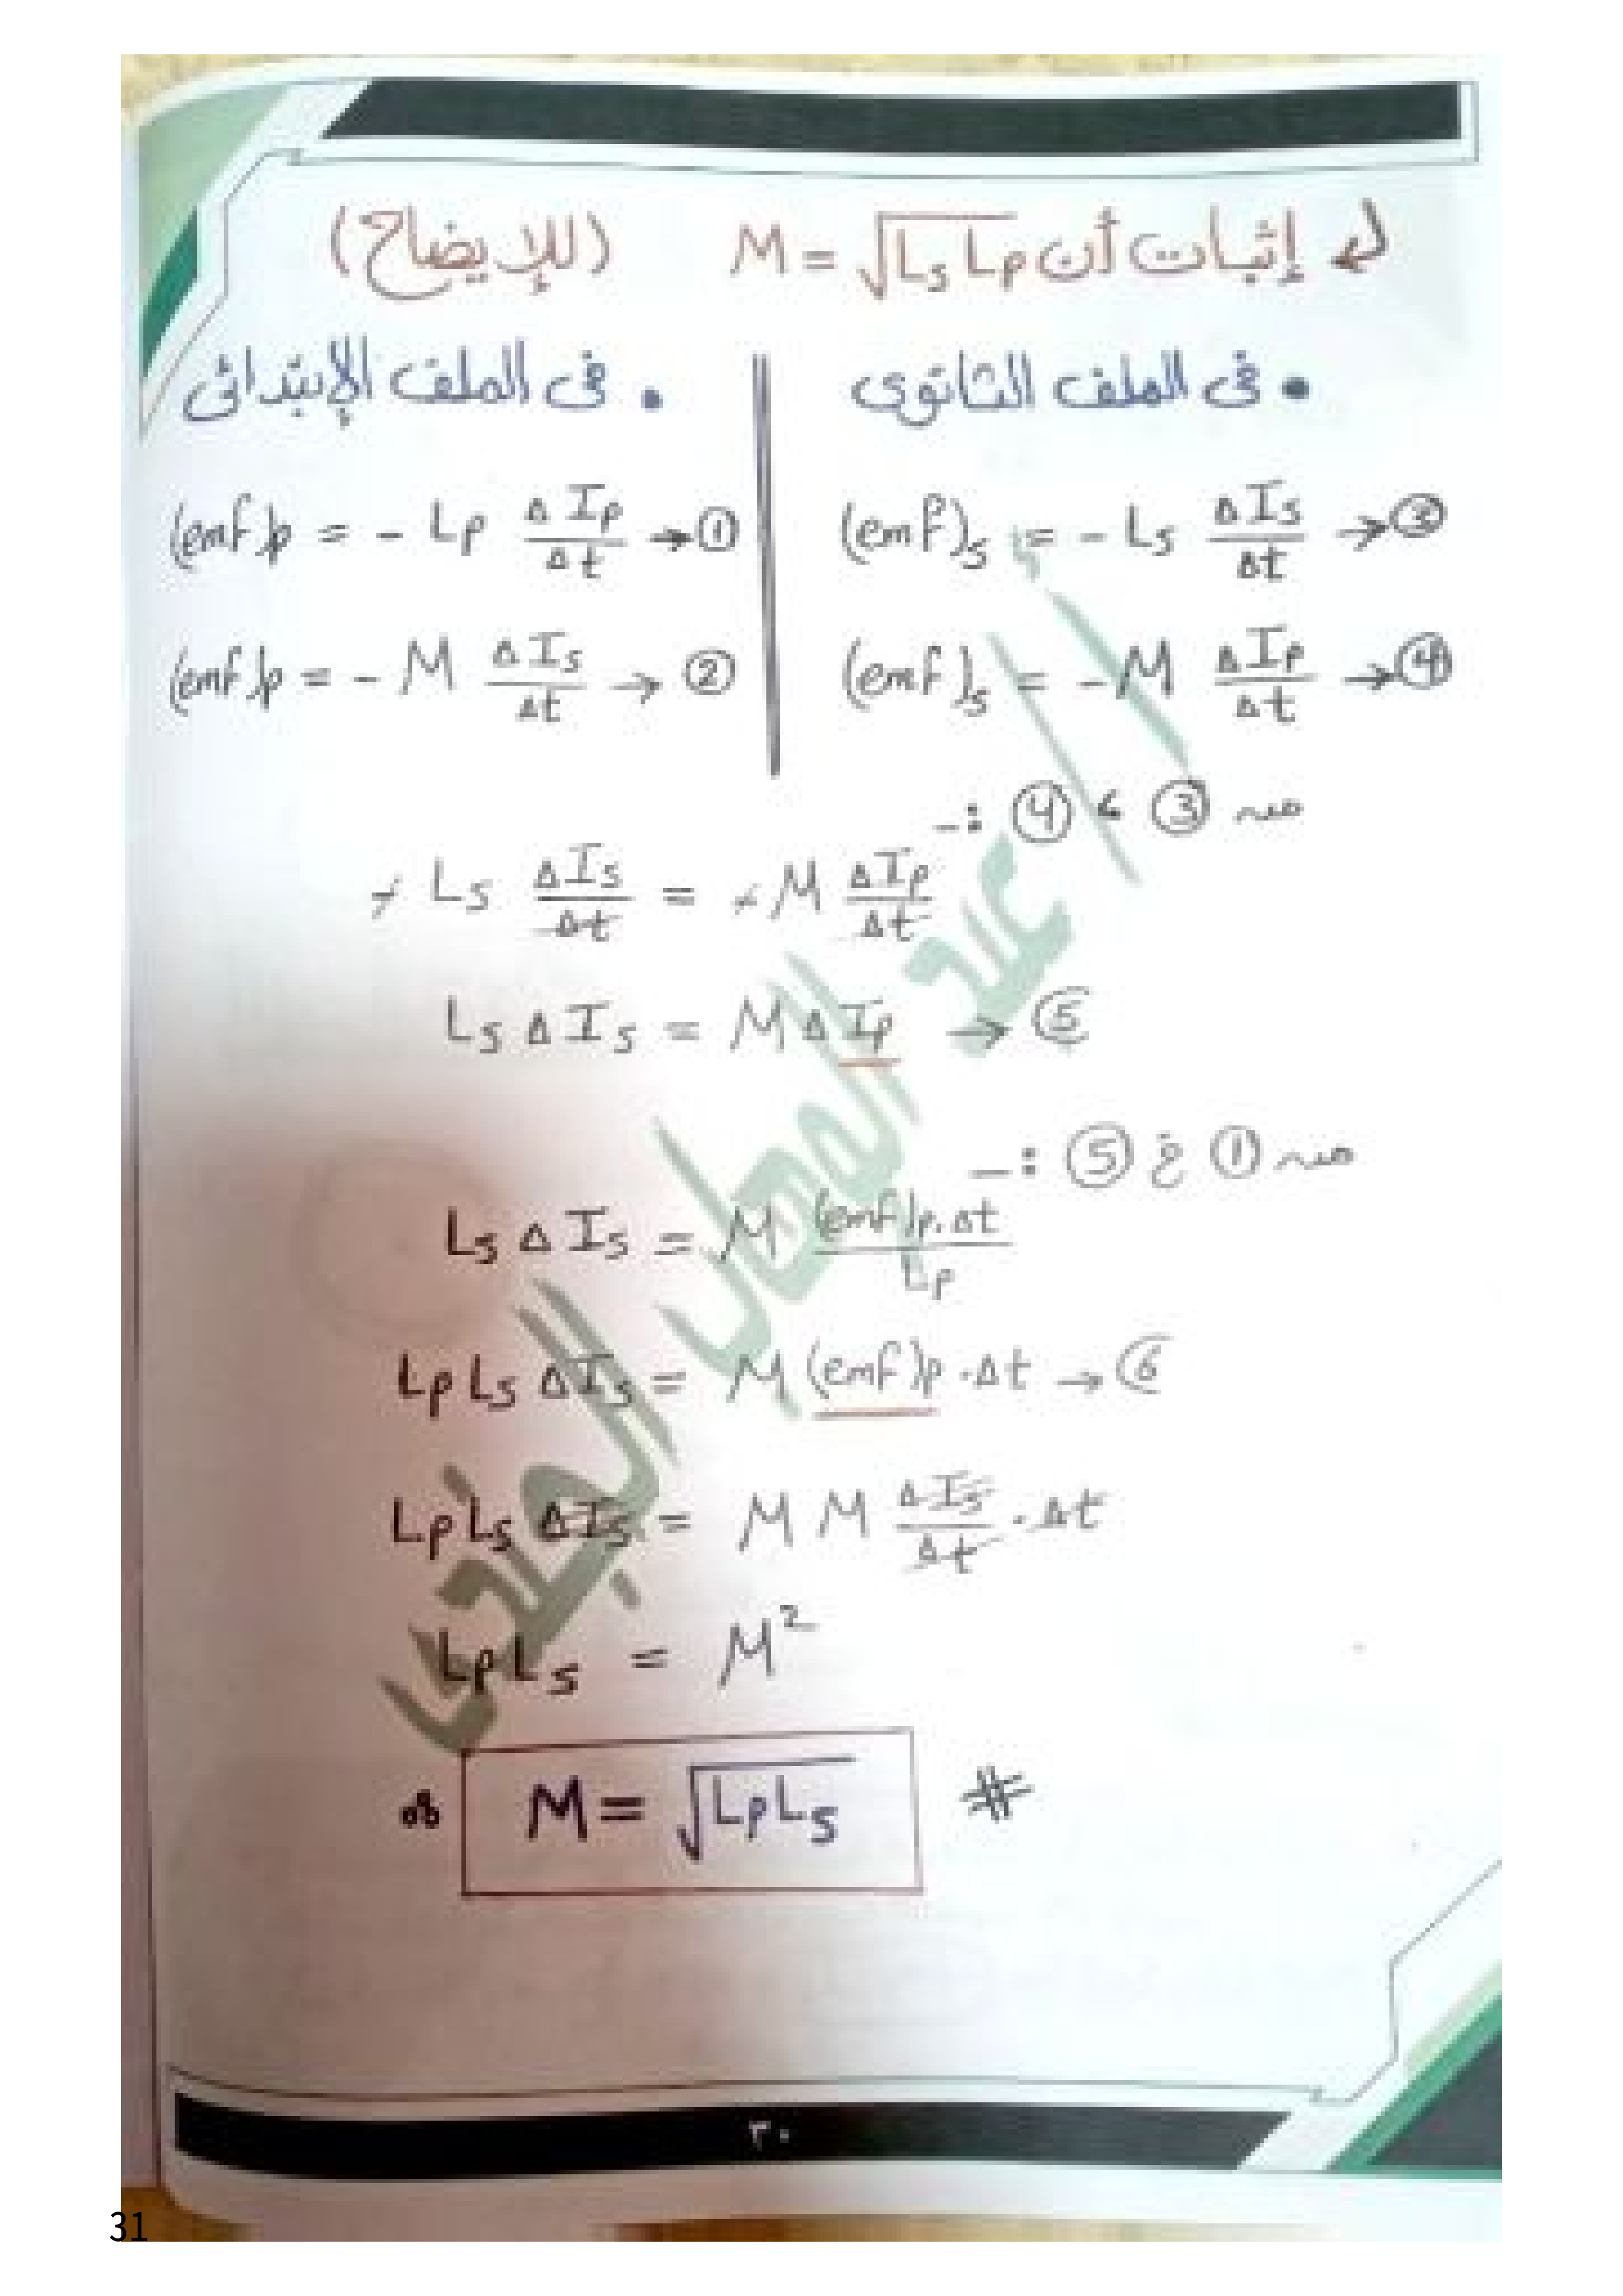 إثبات أن M = √Ls Lp (للإيضاح)
• فى الملف الثانوى
(emf)s = - Ls ΔIs/Δt → ③
(emf)s = - M ΔIp/Δt → ④
• فى الملف الإبتدائى
(emf)p = - Lp ΔIp/Δt → ①
(emf)p = - M ΔIs/Δt → ②
من ③ ، ④ :-
- Ls ΔIs/Δt = - M ΔIp/Δt
Ls ΔIs = M ΔIp → ⑤
من ① في ⑤ :-
Ls ΔIs = M (emf)p.Δt/Lp
Lp Ls ΔIs = M (emf)p . Δt → ⑥
Lp Ls ΔIs = M M ΔIs/Δt . Δt
Lp Ls = M²
∴ M = √Lp Ls #
٣٠
31